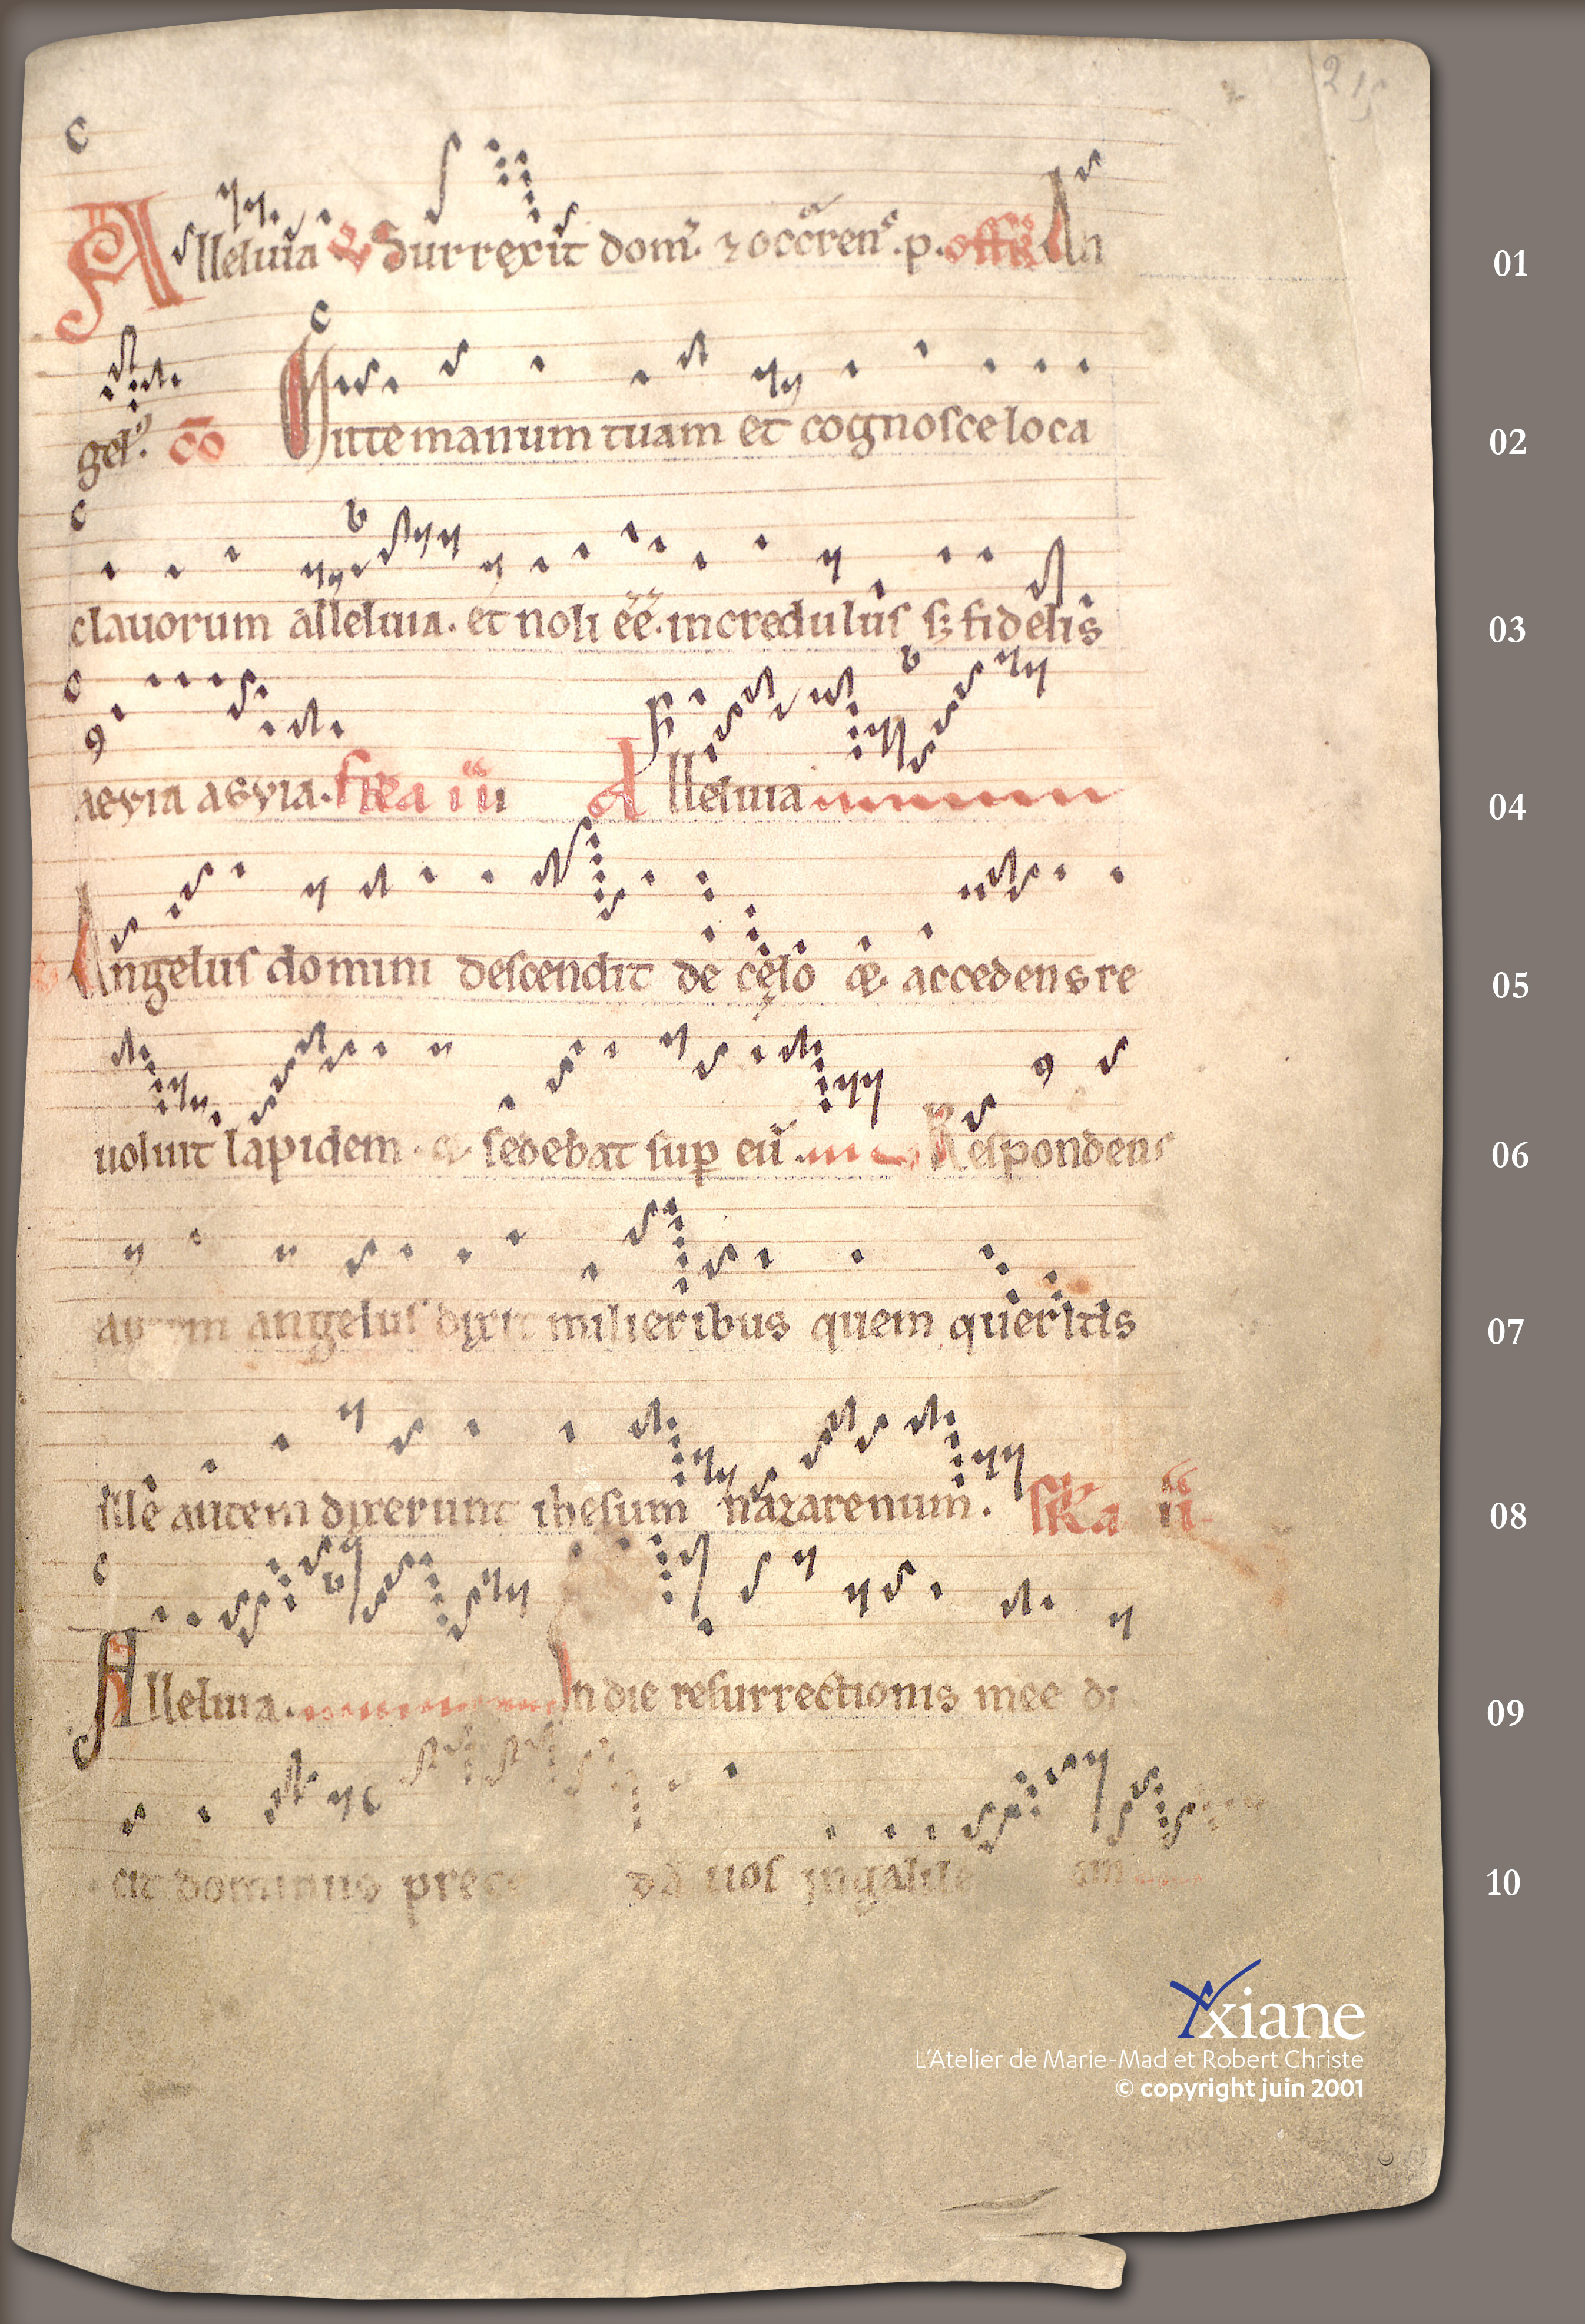 215
Alleluia Surrexit dom. 7 occcren. p. offr An 01
gel. co Mitte manum tuam et cognosce loca 02
clauorum alleluia. et noli ee. incredulus s; fidelis 03
aeyia aeyia. fria iii Alleluia 04
Angelus domini descendit de cęlo & accedens re 05
uoluit lapidem. & sedebat sup eu. Respondens 06
angelus dixit mulieribus quem queritis 07
ille autem dixerunt ihesum nazarenum. 08
Alleluia. In die resurrectionis mee di 09
cit dominus prece da uos in galile am 10
xiane
L'Atelier de Marie-Mad et Robert Christe
© copyright juin 2001